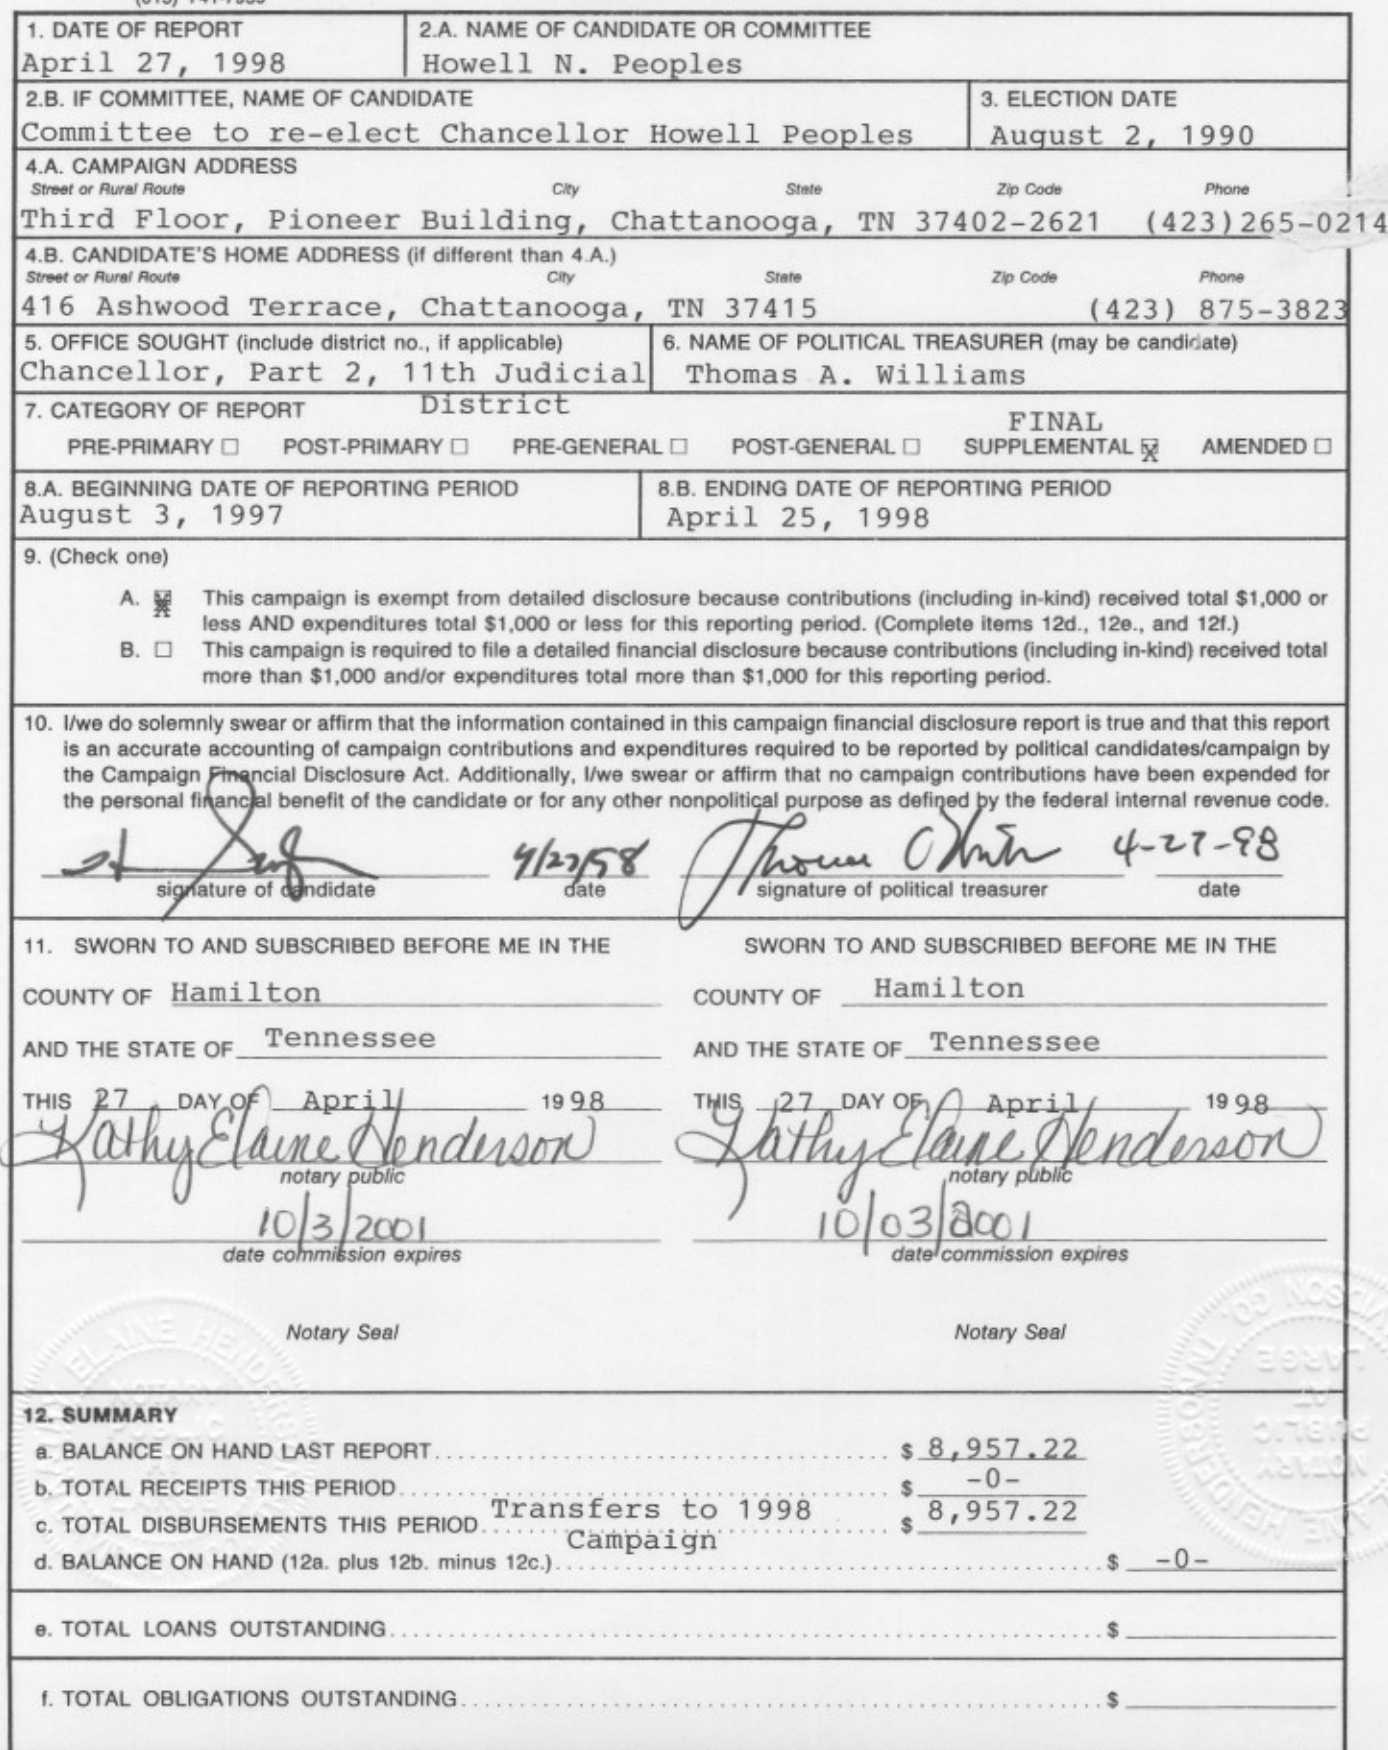 1. DATE OF REPORT
April 27, 1998
2.A. NAME OF CANDIDATE OR COMMITTEE
Howell N. Peoples
2.B. IF COMMITTEE, NAME OF CANDIDATE
Committee to re-elect Chancellor Howell Peoples
3. ELECTION DATE
August 2, 1990
4.A. CAMPAIGN ADDRESS
Street or Rural Route City State Zip Code Phone
Third Floor, Pioneer Building, Chattanooga, TN 37402-2621 (423)265-0214
4.B. CANDIDATE'S HOME ADDRESS (if different than 4.A.)
Street or Rural Route City State Zip Code Phone
416 Ashwood Terrace, Chattanooga, TN 37415 (423) 875-3823
5. OFFICE SOUGHT (include district no., if applicable)
Chancellor, Part 2, 11th Judicial
District
6. NAME OF POLITICAL TREASURER (may be candidate)
Thomas A. Williams
7. CATEGORY OF REPORT
FINAL
PRE-PRIMARY ☐ POST-PRIMARY ☐ PRE-GENERAL ☐ POST-GENERAL ☐ SUPPLEMENTAL ☒ AMENDED ☐
8.A. BEGINNING DATE OF REPORTING PERIOD
August 3, 1997
8.B. ENDING DATE OF REPORTING PERIOD
April 25, 1998
9. (Check one)
A. ☒ This campaign is exempt from detailed disclosure because contributions (including in-kind) received total $1,000 or
less AND expenditures total $1,000 or less for this reporting period. (Complete items 12d., 12e., and 12f.)
B. ☐ This campaign is required to file a detailed financial disclosure because contributions (including in-kind) received total
more than $1,000 and/or expenditures total more than $1,000 for this reporting period.
10. I/we do solemnly swear or affirm that the information contained in this campaign financial disclosure report is true and that this report
is an accurate accounting of campaign contributions and expenditures required to be reported by political candidates/campaign by
the Campaign Financial Disclosure Act. Additionally, I/we swear or affirm that no campaign contributions have been expended for
the personal financial benefit of the candidate or for any other nonpolitical purpose as defined by the federal internal revenue code.
4/27/98 4-27-98
signature of candidate date signature of political treasurer date
11. SWORN TO AND SUBSCRIBED BEFORE ME IN THE
COUNTY OF Hamilton
AND THE STATE OF Tennessee
THIS 27 DAY OF April 1998
Kathy Elaine Henderson
notary public
10/3/2001
date commission expires
Notary Seal
SWORN TO AND SUBSCRIBED BEFORE ME IN THE
COUNTY OF Hamilton
AND THE STATE OF Tennessee
THIS 27 DAY OF April 1998
Kathy Elaine Henderson
notary public
10/03/2001
date commission expires
Notary Seal
12. SUMMARY
a. BALANCE ON HAND LAST REPORT $ 8,957.22
b. TOTAL RECEIPTS THIS PERIOD $ -0-
c. TOTAL DISBURSEMENTS THIS PERIOD Transfers to 1998 $ 8,957.22
Campaign
d. BALANCE ON HAND (12a. plus 12b. minus 12c.) $ -0-
e. TOTAL LOANS OUTSTANDING $
f. TOTAL OBLIGATIONS OUTSTANDING $